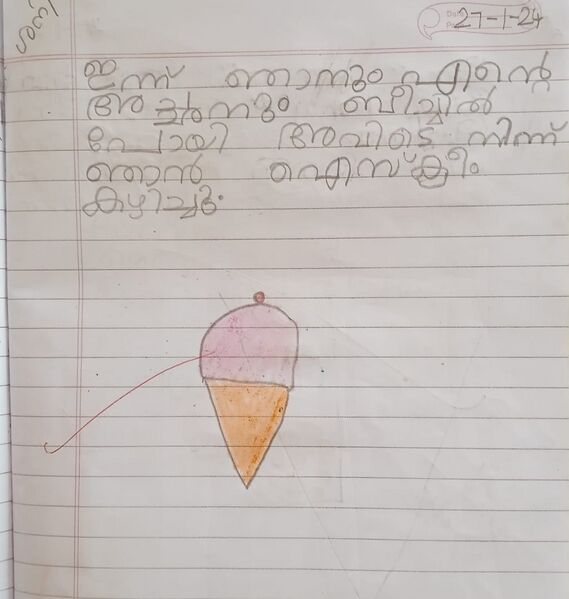 27-1-24
ഇന്ന് ഞാനും എന്റെ
അച്ഛനും ബീച്ചിൽ
പോയി അവിടെ നിന്ന്
ഞാൻ ഐസ്ക്രീം
കഴിച്ചു.